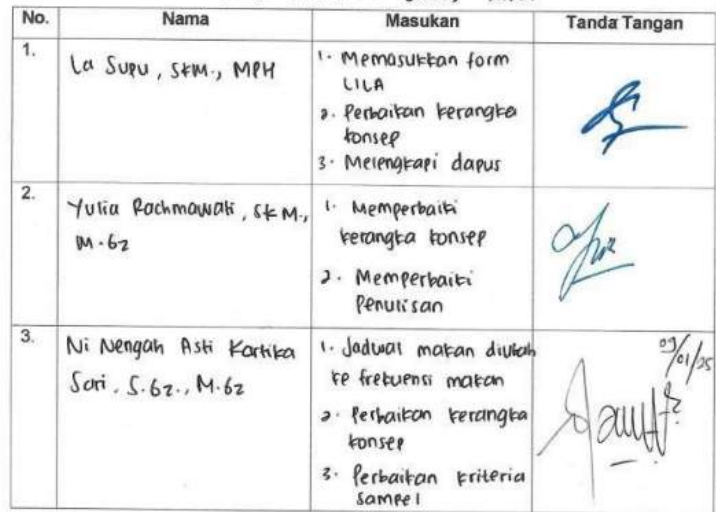 No. Nama Masukan Tanda Tangan
1. La Supu, SKM., MPH
1. Memasukkan form
LILA
2. Perbaikan kerangka
konsep
3. Melengkapi dapus
2. Yulia Rachmawati, SKM.,
M.Gz
1. Memperbaiki
kerangka konsep
2. Memperbaiki
Penulisan
3. Ni Nengah Asti Kartika
Sari, S.Gz., M.Gz
1. Jadwal makan diubah
ke frekuensi makan
2. Perbaikan kerangka
konsep
3. Perbaikan kriteria
sampel
09/01/25